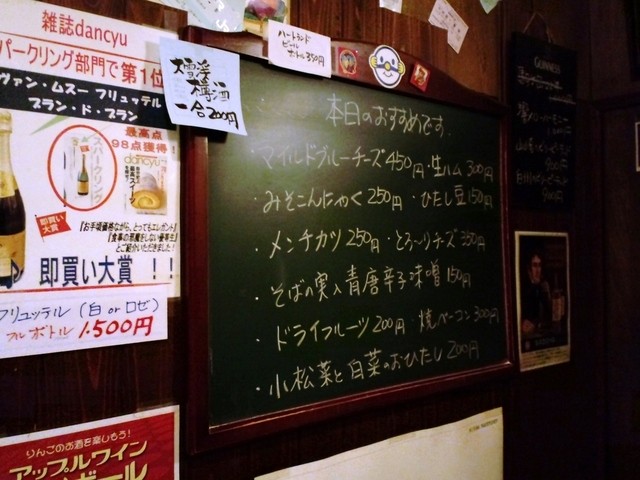 雑誌dancyu
パークリング部門で第1位
ヴァン・ムスー フリュッテル
ブラン・ド・ブラン
最高点
98点獲得!
スパークリング
dancyu
即買い
大賞
『お手頃価格ながら、とってもエレガント』
『食事の邪魔をしない優等生』
とご紹介いただきました!
即買い大賞 !!
フリュッテル(白 or ロゼ)
フルボトル 1.500円
りんごのお酒を楽しもう!
アップルワイン
ボール
梅酒
一合200円
ハートランド
ビール
ボトル350円
本日のおすすめです
・マイルドブルーチーズ450円・生ハム300円
・みそこんにゃく250円・ひたし豆150円
・メンチカツ250円・とろ〜りチーズ350円
・そばの実入青唐辛子味噌150円
・ドライフルーツ200円・焼ベーコン300円
・小松菜と白菜のおひたし200円
GUINNESS